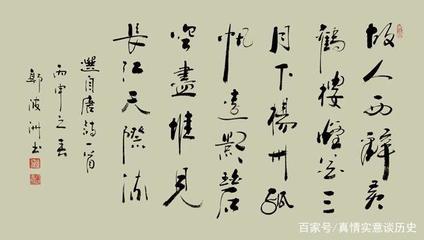 故人西辭黃
鶴樓煙花三
月下楊州孤
帆遠影碧
空盡惟見
長江天際流
選自唐詩一首
丙申之春
波洲书
百家号/真情实意谈历史